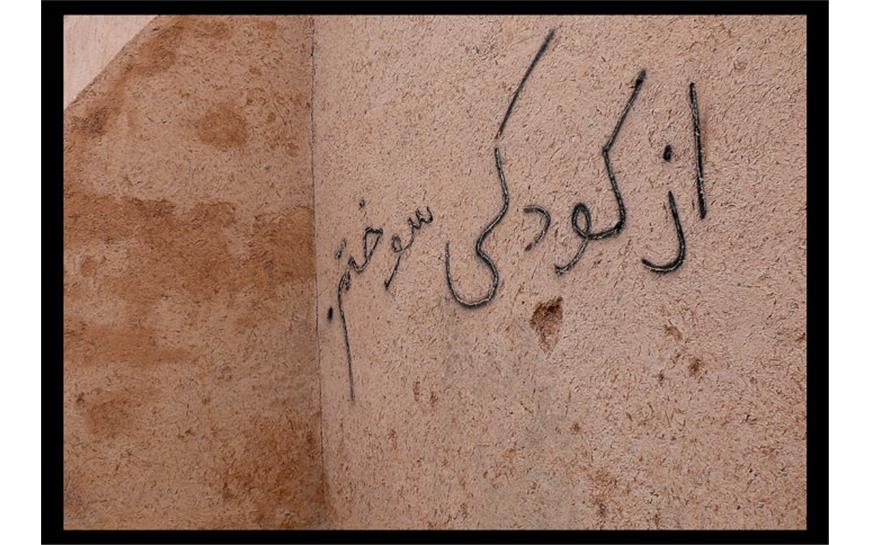 از کودکی سوختم.